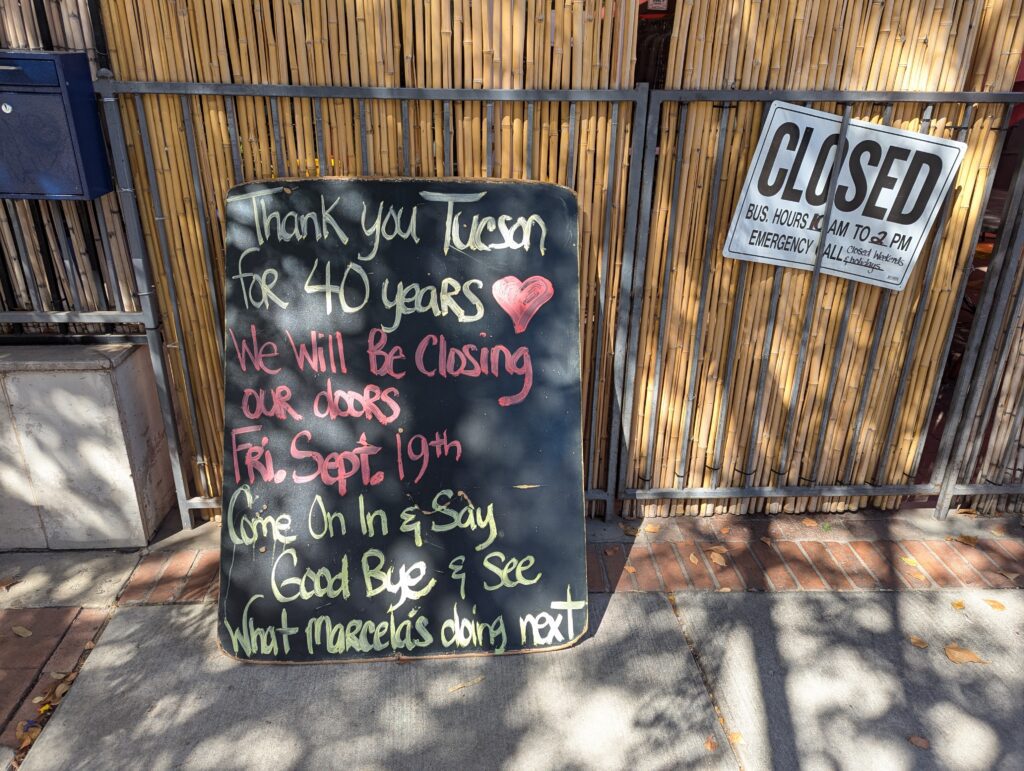 Thank you Tucson
for 40 years
We Will Be Closing
our doors
Fri. Sept. 19th
Come On In & Say
Good Bye & See
What Marcela's doing next
CLOSED
BUS. HOURS 10 AM TO 2 PM
EMERGENCY CALL Closed Weekends
& holidays